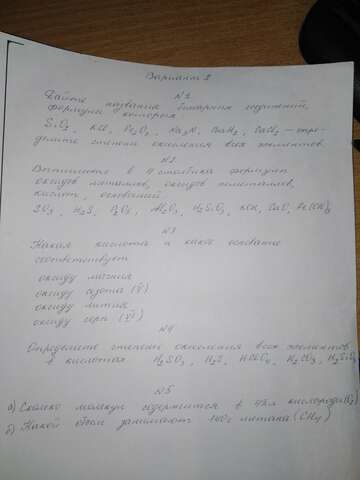 Вариант I
N1
Дайте названия бинарных соединений,
формулы которых
SiO2, KCl, Fe2O3, Na3N, BaH2, CaCl2 – опре-
делите степени окисления всех элементов.
N2
Выпишите в 4 столбика формулы
оксидов металлов, оксидов неметаллов,
кислот, оснований
SO3, H2S, P2O5, Al2O3, H2SiO3, KOH, CaO, Fe(OH)3
N3
Какая кислота и какое основание
соответствует
оксиду магния
оксиду азота (V)
оксиду лития
оксиду серы (VI)
N4
Определите степень окисления всех элементов
в кислотах H2SO3, H2S, H2CO3, H2SiO3
N5
а) Сколько молекул содержится в кислорода (O2)
б) Какой объем занимают метана (CH4)